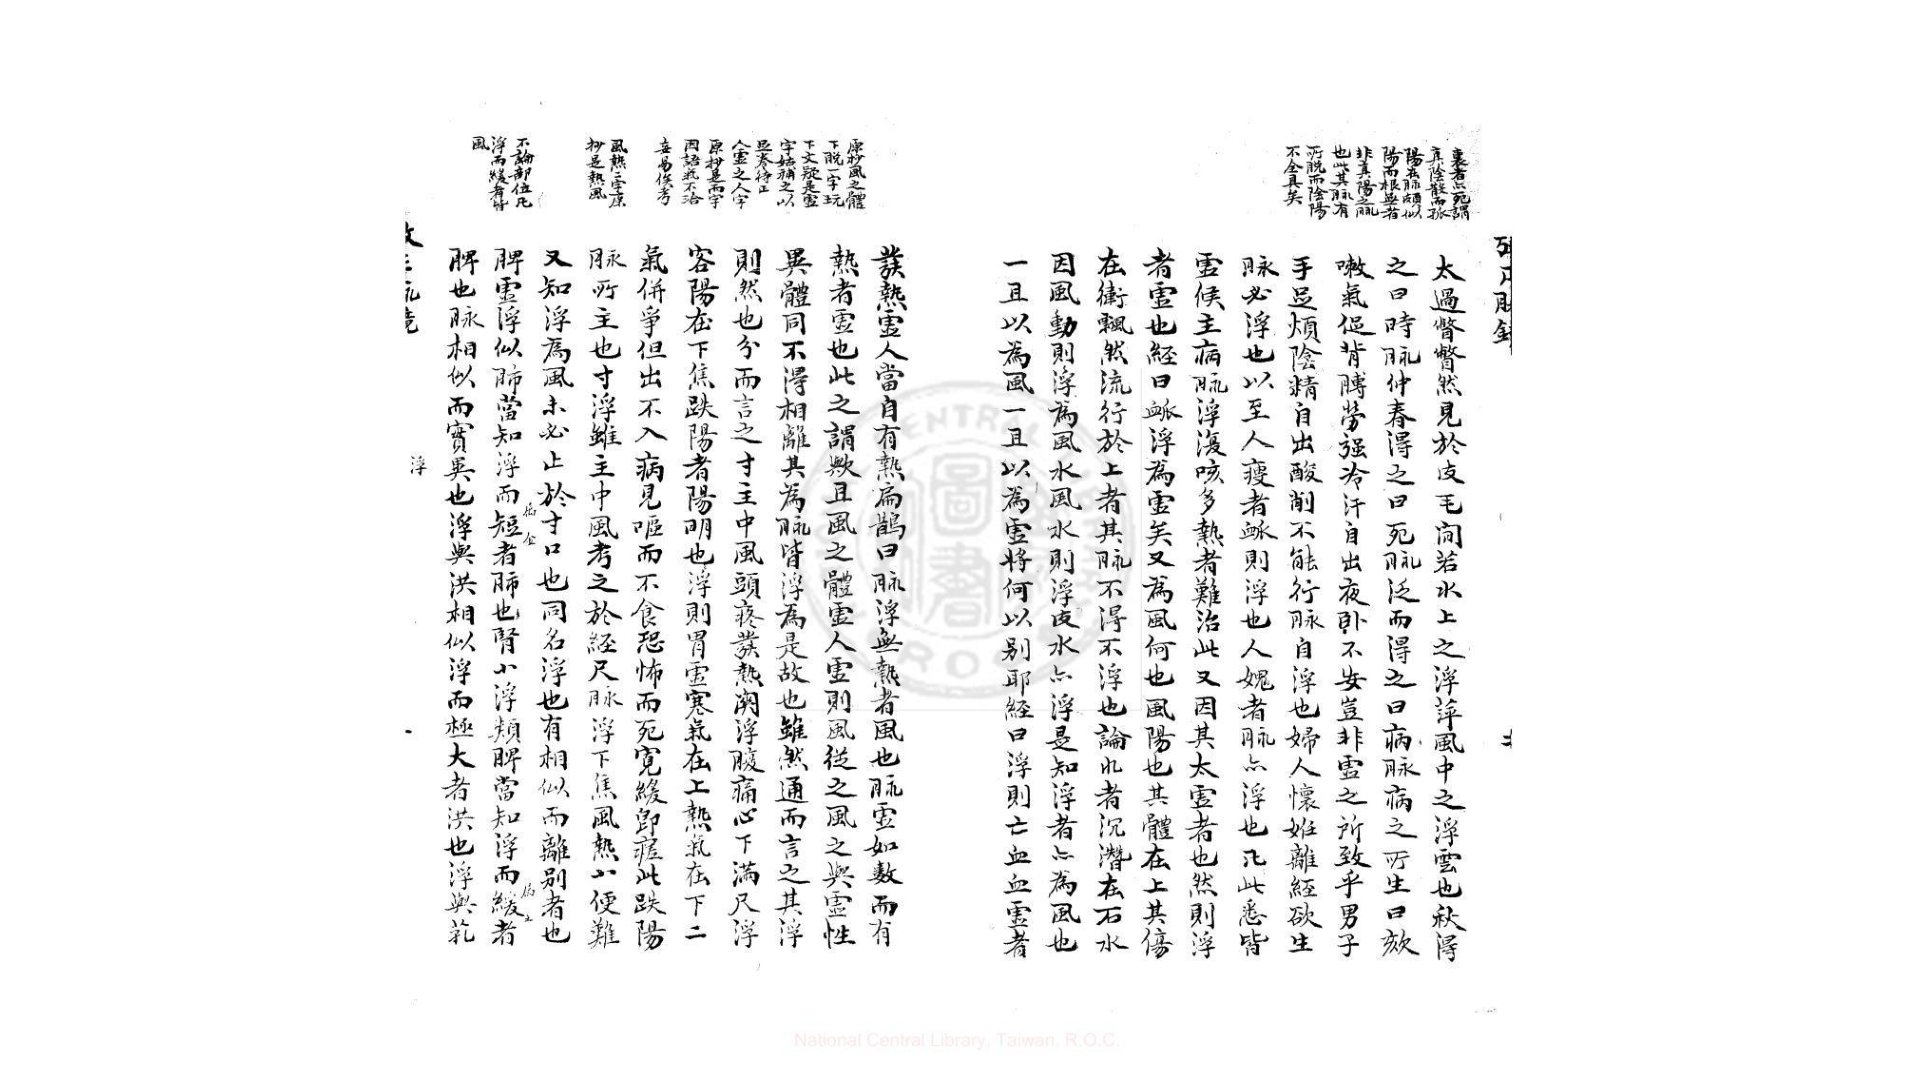 裏者亦死謂
真陰散而孤
陽在脉頗似
陽而根無者
非真陽之脈
也此其脉有
所脱而陰陽
不全具矣
太過瞥瞥然見於皮毛間若水上之浮萍風中之浮雲也秋得
之曰時脉仲春得之曰死脉泛而得之曰病脉病之所生曰欬
嗽氣促背膊勞强冷汗自出夜卧不安豈非虛之所致乎男子
手足煩陰精自出酸削不能行脉自浮也婦人懷妊離經欲生
脉必浮也以至人瘦者脉則浮也人媿者脉亦浮也凡此悉皆
虛候主病脉浮復咳多熱者難治此又因其太虛者也然則浮
者虛也經曰脉浮為虛矣又為風何也風陽也其體在上其傷
在衛飄然流行於上者其脉不得不浮也論水者沉濳在石水
因風動則浮為風水風水則浮皮水亦浮是知浮者亦為風也
一且以為風一且以為虛將何以别耶經曰浮則亡血血虛者
原抄風之體
下脱一字玩
下文疑是虛
字姑補之以
足考待正
人虛之人字
原抄是而字
因語氣不洽
妄易俟考
風熱二字原
抄是熱風
不論部位凡
浮而緩者皆
風
發熱虛人當自有熱扁鵲曰脉浮無熱者風也脉虛如數而有
熱者虛也此之謂歟且風之體虛人虛則風從之風之與虛性
異體同不得相離其為脉皆浮為是故也雖然通而言之其浮
則然也分而言之寸主中風頭疼發熱関浮腹痛心下滿尺浮
客陽在下焦趺陽者陽明也浮則胃虛寒氣在上熱氣在下二
氣併爭但出不入病見嘔而不食恐怖而死寛緩卽瘥此趺陽
脉所主也寸浮雖主中風考之於經尺脉浮下焦風熱小便難
又知浮為風未必止於寸口也同名浮也有相似而離别者也
脾虛浮似肺當知浮而短者肺也腎小浮類脾當知浮而緩者
脾也脉相似而實異也浮與洪相似浮而極大者洪也浮與芤
浮